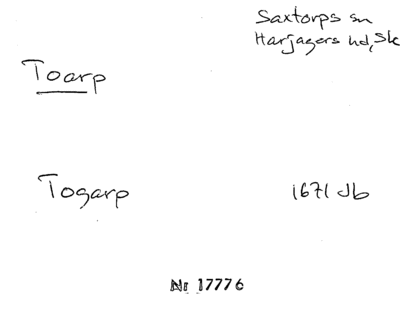 Saxtorps sn
Harjagers hd, Sk
Toarp
Togarp 1671 Jb
Nr 17776